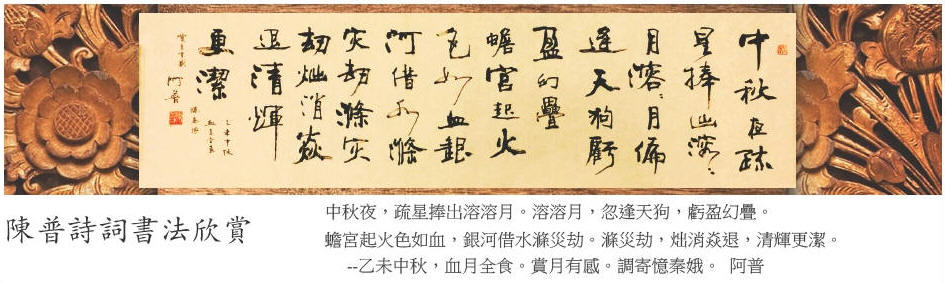 中秋夜疏
星捧出溶々
月溶々月偏
逢天狗虧
盈幻疊
蟾宮起火
色如血銀
河借水滌
灾劫滌灾
劫炪消焱
退清輝
更潔
乙未中秋
血月全食
阿普
陳普詩詞書法欣賞
中秋夜，疏星捧出溶溶月。溶溶月，忽逢天狗，虧盈幻疊。
蟾宮起火色如血，銀河借水滌災劫。滌災劫，炪消焱退，清輝更潔。
--乙未中秋，血月全食。賞月有感。調寄憶秦娥。 阿普